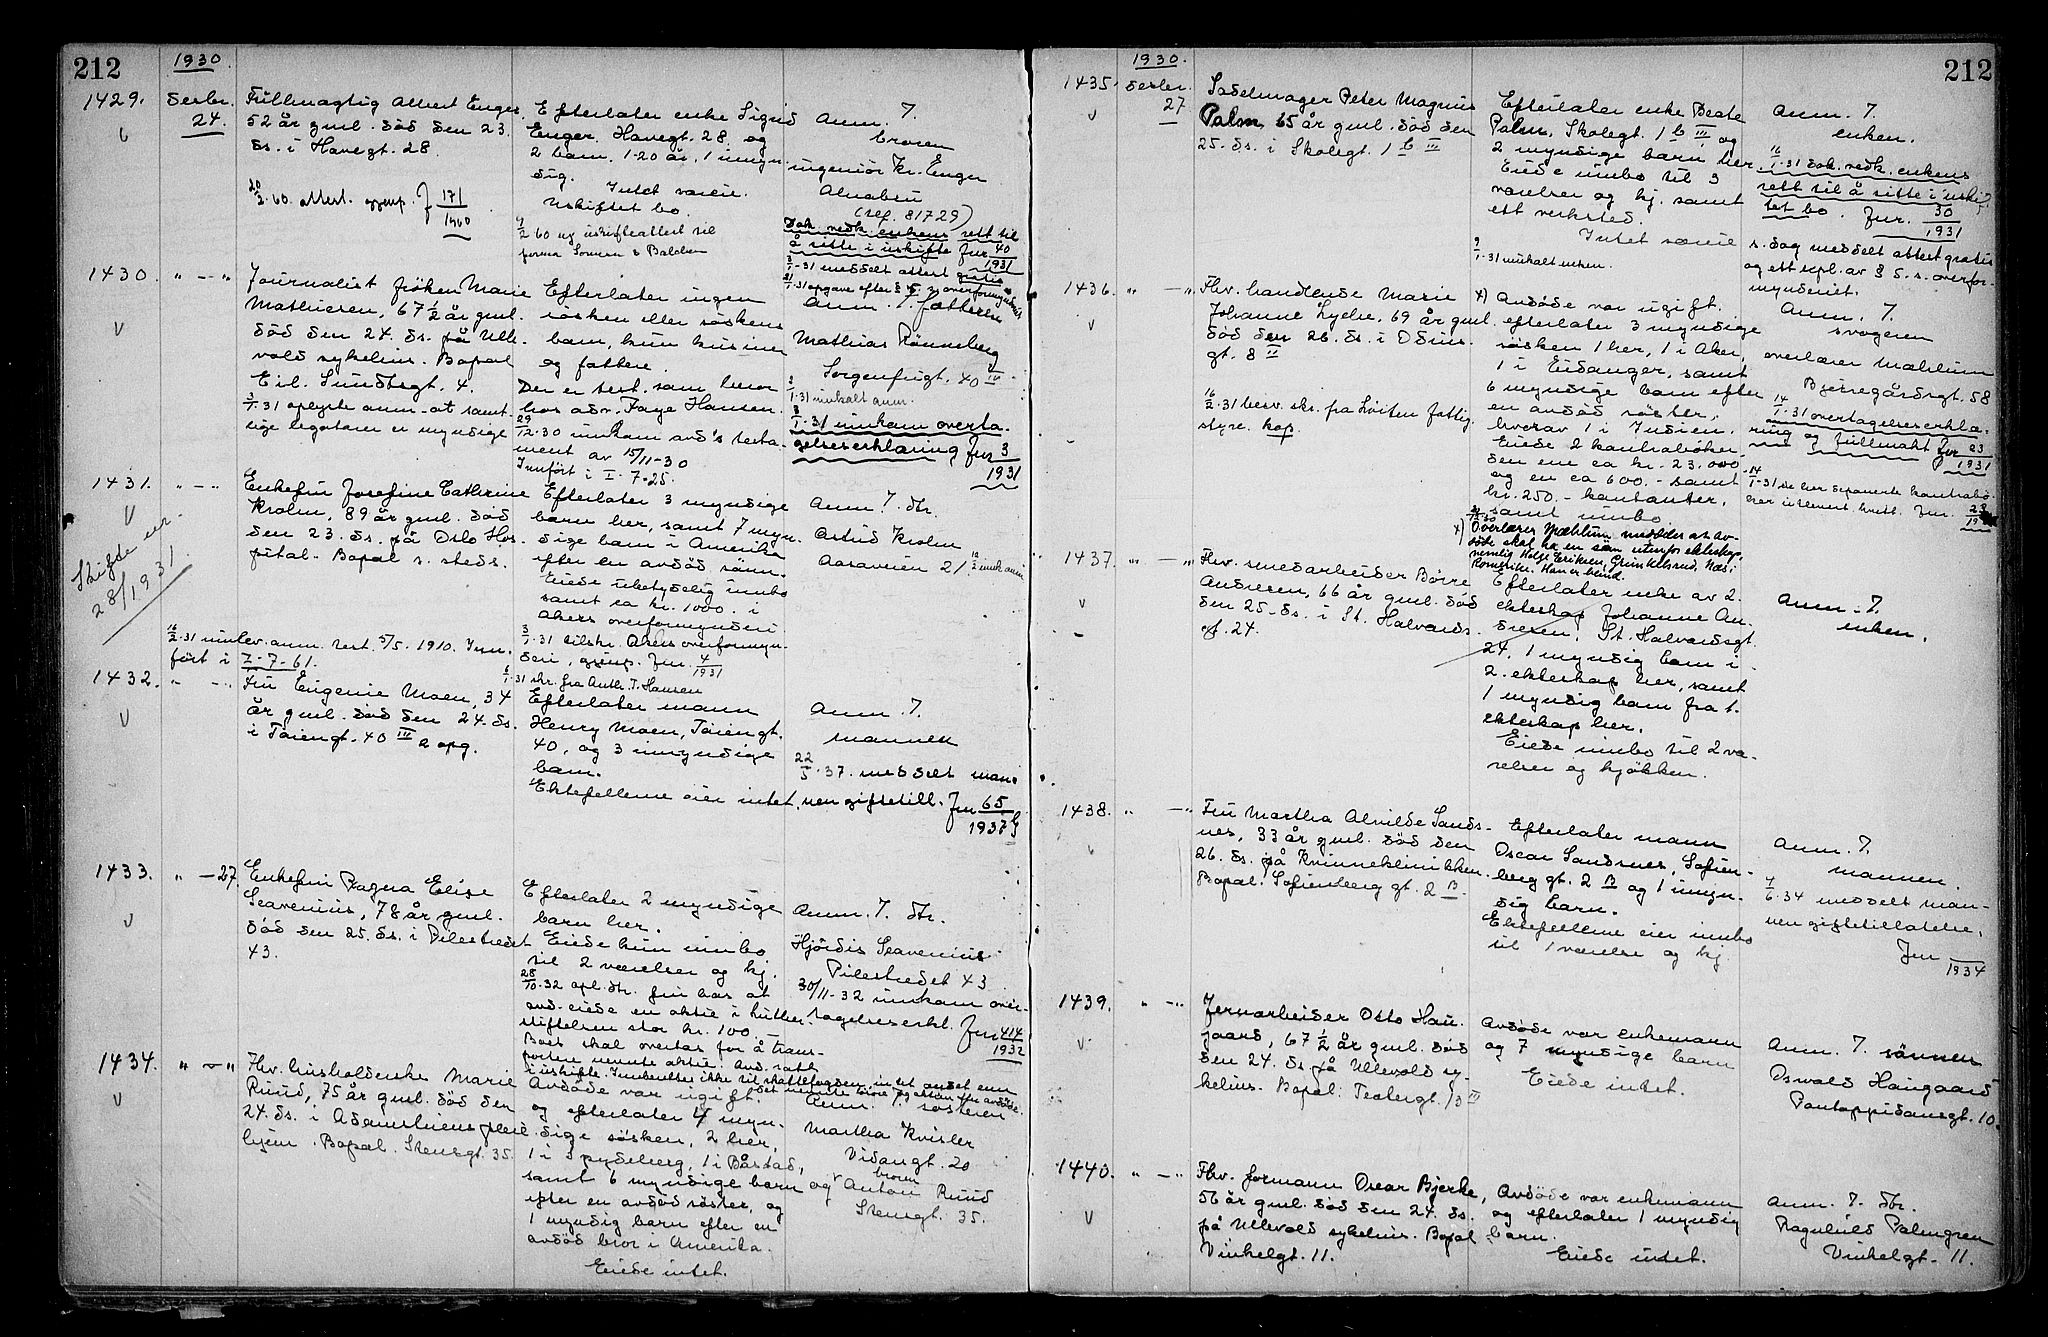 212
1930
1429.
Desbr.
24.
Fullmagtig Albert Enger
52 år gml. död den 23.
ds. i Havegt. 28.
20/3.60. attest. gjenp. J 171/1960
Efterlater enke Sigrid
Enger, Havegt. 28, og
2 barn, 1-20 år, 1 umyn-
dig.
Intet særeie.
Uskiftet bo.
Anm. 7.
broren
ingeniör Kr. Enger
Alnabru
(tel. 81729)
Dok. vedk. enkens rett til
å sitte i uskifte Jur 40/1931
1430.
" — "
Journalist fröken Marie
Mathiesen, 67 1/2 år gml.
död den 24. ds. på Ulle-
vold sykehus. Bopal
Eil. Sundtsgt. 4.
3/1.31 oplyste anm. at samt-
lige legatarer er myndige
Efterlater ingen
sösken eller söskens
barn, kun kusiner
og fettere.
Der er test. som beror
hos adv. Faye Hansen.
29/12.30 innkom avd's testa-
ment av 15/11-30
Innfört i I - 7-25.
Anm. 7. fetteren
Mathias Rönneberg
Sorgenfrigt. 40 IV
3/1.31 innkalt anm.
8/1.31 innkom overta-
gelseserklæring Jur 3/1931
1431.
" — "
Skifte nr.
28/1931
Enkefru Josefine Cathrine
Krohn, 89 år gml. död
den 23. ds. på Oslo Hos-
pital. Bopal s. steds.
16/2.31 innlev. anm. test. 5/5. 1910. Inn-
fört i I-7-61.
Efterlater 3 myndige
barn her, samt 7 myn-
dige barn i Amerika
efter en avdöd sönn.
Eiede ubetydelig innbo
samt ca kr. 1000.- i
Akers overformynderi
3/1.31 tilskr. Akers overformyn-
deri, gjenp. Jur. 4/1931
6/1.31 skr. fra Anth. T. Hansen
Anm. 7. dtr.
Astrid Krohn
Aasaveien 21.
1432.
" — "
Fru Eugenie Moen, 34
år gml. död den 24. ds.
i Töiengt. 40 IV 2 opg.
Efterlater mann
Henry Moen, Töiengt.
40, og 3 umyndige
barn.
Ektefellene eier intet.
Anm. 7.
mannen
22/5.37. meddelt man-
nen giftetill. Jur 65/1937
1433.
" — 27.
Enkefru Ragna Elise
Scavenius, 78 år gml.
död den 25. ds. i Pilestredet
43.
Efterlater 2 myndige
barn her.
Eiede kun innbo
til 2 værelser og kj.
28/10.32 opl. dtr. fru bas at
avd. eiede en aktie i Luther-
stiftelsen stor kr. 100.-
Boet skal overtas for å trans-
portere nevnte aktie. Avd. satt
i uskifte.
Anm. 7. dtr.
Hjördis Scavenius
Pilestredet 43.
30/11-32 innkom over-
tagelseserkl. Jur 414/1932
1434.
" — "
Fhv. husholderske Marie
Ruud, 75 år gml. död den
24. ds. i Adamstuens pleie-
hjem. Bopal. Stensgt. 35.
Avdöde var ugift
og efterlater 4 myn-
dige sösken, 2 her,
1 i Spydeberg, 1 i Båstad,
samt 6 myndige barn
efter en avdöd söster, og
1 myndig barn efter en
avdöd bror i Amerika.
Eiede intet.
Anm. 7. sösteren
Martha Kvisler
Vidargt. 20
og broren
Anton Ruud
Stensgt. 35.
1930.
212
1435.
Desbr.
27
Sadelmager Peter Magnus
Palm, 65 år gml. död den
25. ds. i Skolegt. 1 b III
Efterlater enke Beate
Palm, Skolegt. 1 b III, og
2 myndige barn her
Eiede innbo til 3
værelser og kj. samt
ett verksted.
Intet særeie
9/1.31 innkalt enken.
Anm. 7.
enken.
16/1.31 dok. vedk. enkens
rett til å sitte i uskif-
tet bo. Jur. 30/1931
s. dag meddelt attest gratis
og ett expl. av § 5. s. overfor-
mynderiet.
1436.
" — "
Fhv. handlende Marie
Johanne Lyche, 69 år gml.
död den 26. ds. i Odins-
gt. 8 II
16/2.31 besv. skr. fra Löiten fattig-
styre. kop.
x) Avdöde var ugift.
efterlater 3 myndige
sösken 1 her, 1 i Aker,
1 i Eidanger, samt
6 myndige barn efter
en avdöd söster,
hvorav 1 i Indien.
Eiede 2 kontraböker,
den ene ca kr. 23.000
og en ca 600.- samt
kr. 250.- kontanter,
samt innbo.
x) Overlærer Mæhlum meddeler at av-
döde skal ha en sönn utenfor ekteskap,
nemlig Helge Eriksen, Grinkelsrud, Nes i
Romerike. Han er blind.
Anm. 7.
svogeren
overlærer Mæhlum
Bjerregårdsgt. 58
14/1.31 overtagelseserklæ-
ring og fullmakt Jur 23/1931
14/1.31 de her deponerte kontrabö-
ker utlevert kvitt. Jur. 23/19
1437.
" — "
Fhv. smedarbeider Börre
Andresen, 66 år gml. död
den 25. ds. i St. Halvards-
gt. 24.
Efterlater enke av 2.
ekteskap Johanne An-
dresen, St. Halvardsgt.
24, 1 myndig barn i
2. ekteskap her, samt
1 myndig barn fra 1.
ekteskap her.
Eiede innbo til 2 væ-
relser og kjökken.
Anm. 7.
enken.
1438.
" — "
Fru Martha Alvilde Sands-
nes, 33 år gml. död den
26. ds. på Kvinneklinikken
Bopal. Sofienberg gt. 2 B
Efterlater mann
Oscar Sandsnes, Sofien-
berg gt. 2 B og 1 umyn-
dig barn.
Ektefellene eier innbo
til 1 værelse og kj.
Anm. 7.
mannen.
4/6.34 meddelt man-
nen giftetillatelse,
Jur 1934
1439.
" — "
Jernarbeider Osto Hau-
gaard, 67 1/2 år gml. död
den 24. ds. på Ullevold sy-
kehus. Bopal: Teatergt. 13 III
Avdöde var enkemann
og 7 myndige barn
Eiede intet.
Anm. 7. sönnen
Osvald Haugaard
Pontoppidansgt. 10.
1440.
" — "
Fhv. formann Oscar Bjerke,
56 år gml. död den 24. ds.
på Ullevold sykehus. Bopal
Vinkelgt. 11.
Avdöde var enkemann
og efterlater 1 myndig
barn.
Eiede intet.
Anm. 7. dtr.
Ragnhild Palmgren
Vinkelgt. 11.